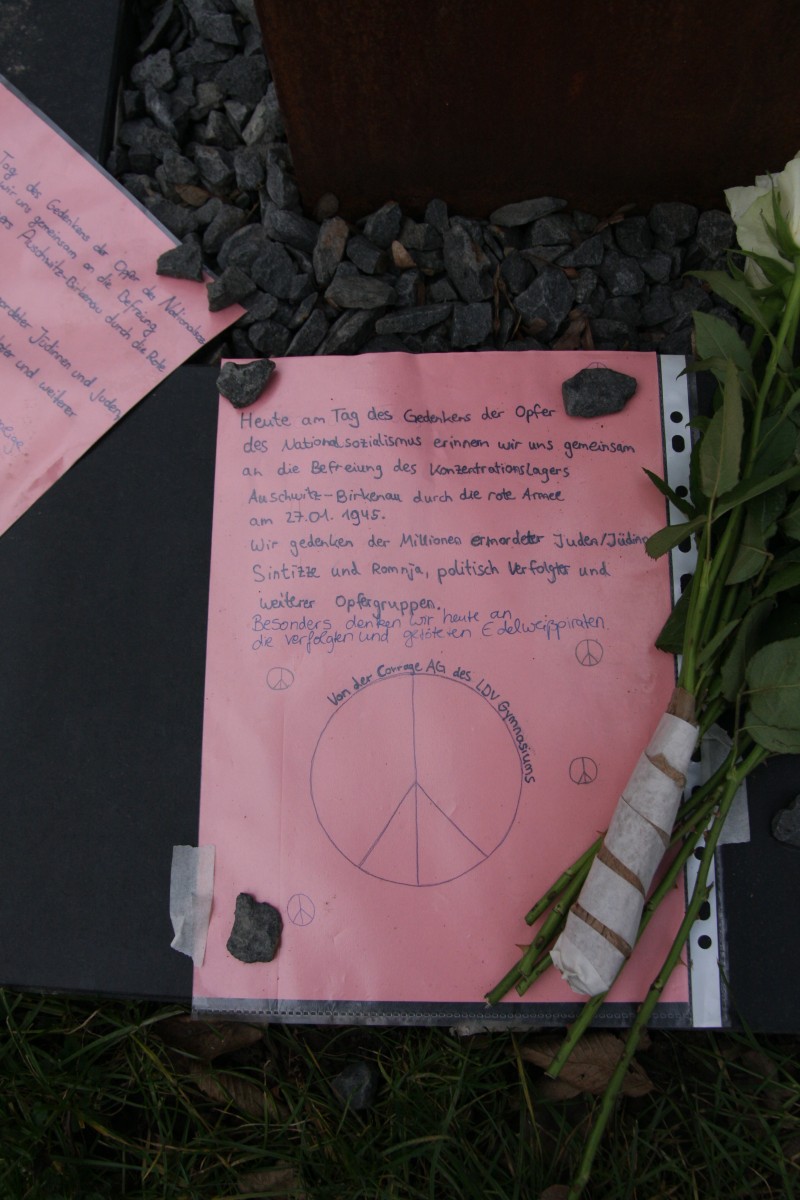 Tag des Gedenkens der Opfer des Nationalsoz
wir uns gemeinsam an die Befreiung
ers Auschwitz-Birkenau durch die Rote
ordeter Jüdinnen und Juden,
und weiterer
Heute am Tag des Gedenkens der Opfer
des Nationalsozialismus erinnern wir uns gemeinsam
an die Befreiung des Konzentrationslagers
Auschwitz-Birkenau durch die rote Armee
am 27.01. 1945.
Wir gedenken der Millionen ermordeter Juden/Jüdinn
Sintizze und Romnja, politisch Verfolgter und
weiterer Opfergruppen.
Besonders denken wir heute an
die verfolgten und getöteten Edelweißpiraten.
Von der Corrage AG des LDV Gymnasiums